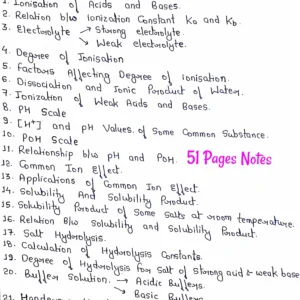 1. Ionisation of Acids and Bases.
2. Relation b/w ionization Constant Ka and Kb.
3. Electrolyte → Strong electrolyte.
↘ Weak electrolyte.
4. Degree of Ionisation
5. Factors Affecting Degree of ionisation.
6. Dissociation and Ionic Product of Water.
7. Ionization of Weak Acids and Bases.
8. PH Scale
9. [H+] and pH Values of Some Common Substance.
10. POH Scale
11. Relationship b/w pH and POH.
51 Pages Notes
12. Common Ion Effect.
13. Applications of Common Ion Effect.
14. Solubility And Solubility Product.
15. Solubility Product of Some Salts at room temperature.
16. Relation B/w Solubility and Solubility Product.
17. Salt Hydrolysis.
18. Calculation of Hydrolysis Constants.
19. Degree of Hydrolysis for Salt of Strong acid & weak base
20. Buffer Solution. → Acidic Buffers.
↘ Basic Buffers
21.